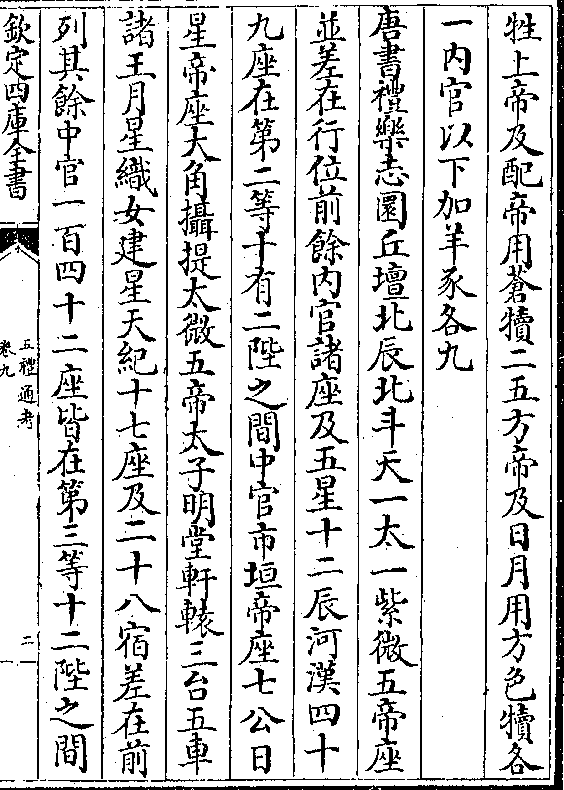 牲上帝及配帝用蒼犢二五方帝及日月用方色犢各
一内官以下加羊豕各九
唐書禮樂志圜丘壇北辰北斗天一太一紫微五帝座
並差在行位前餘内官諸座及五星十二辰河漢四十
九座在第二等十有二陛之間中官市垣帝座七公日
星帝座大角攝提太微五帝太子明堂軒轅三台五車
諸王月星織女建星天紀十七座及二十八宿差在前
列其餘中官一百四十二座皆在第三等十二陛之間
欽定四庫全書
五禮通考
卷九
二